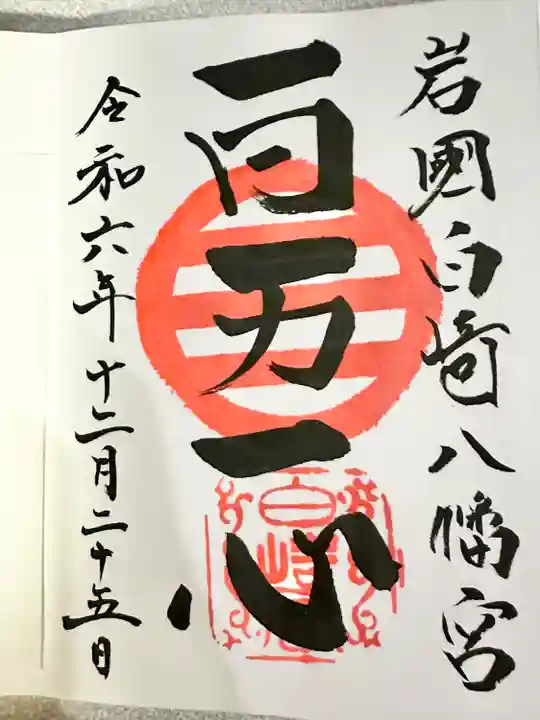 岩國白崎八幡宮
百万一心
令和六年十二月二十五日